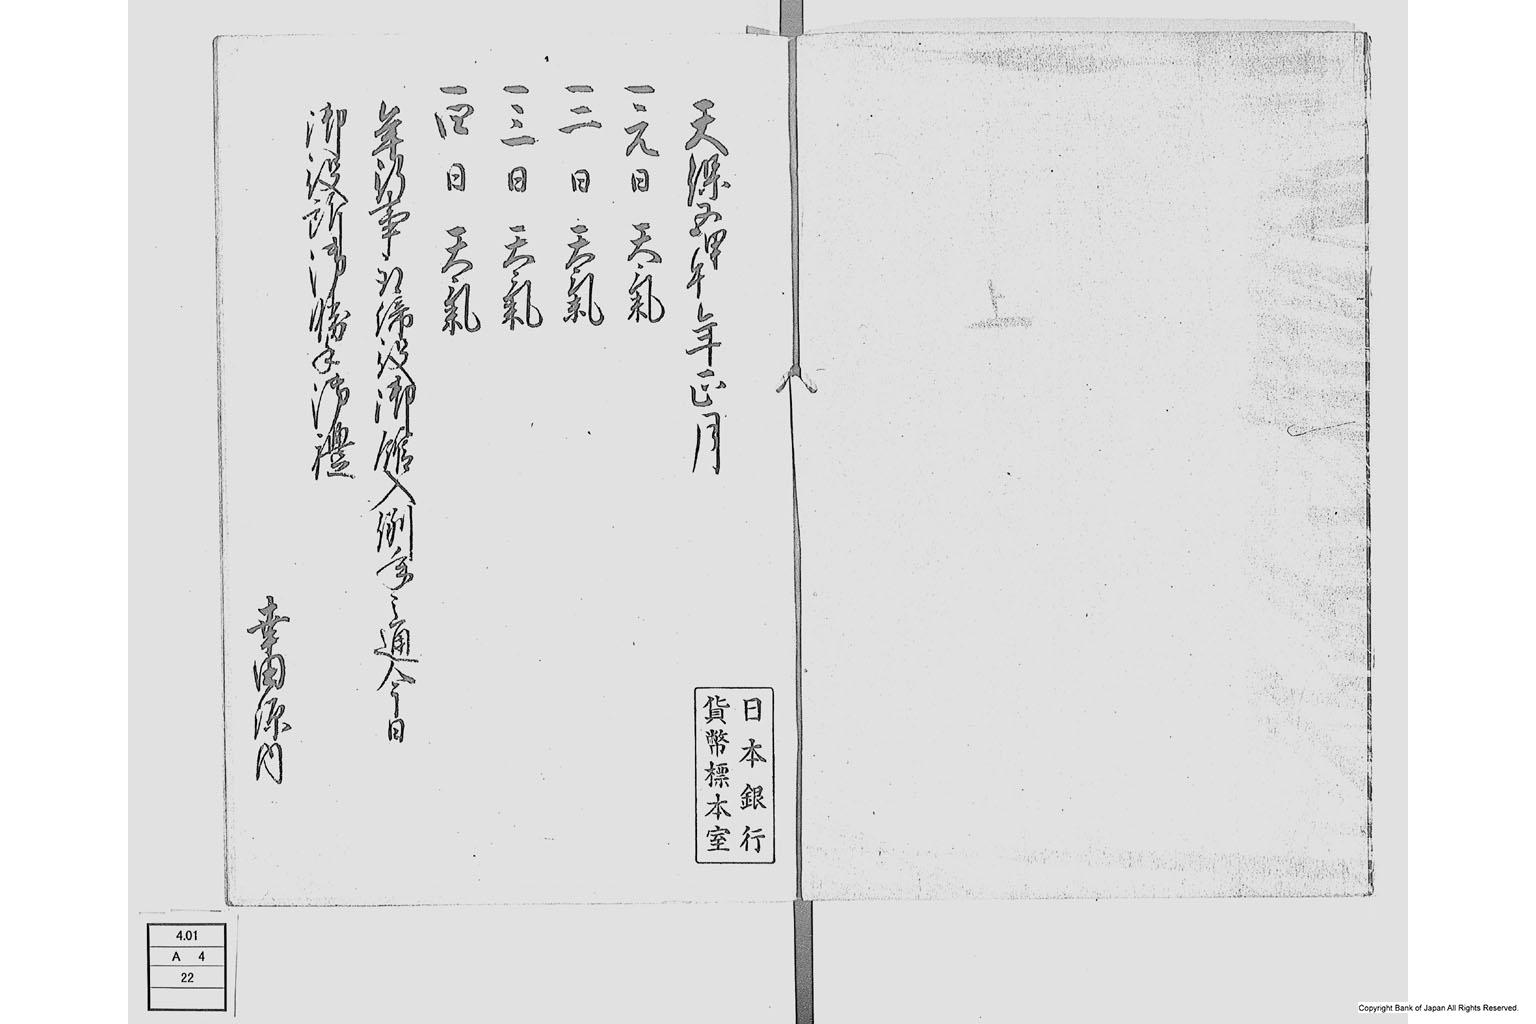 天保五甲午年正月
一元日 天氣
一二日 天氣
一三日 天氣
一四日 天氣
年頭事取締役御館入例年之通今日
御役所御勝手御禮
幸田源内
日本銀行
貨幣標本室
上
4.01
A 4
22
Copyright Bank of Japan All Rights Reserved.